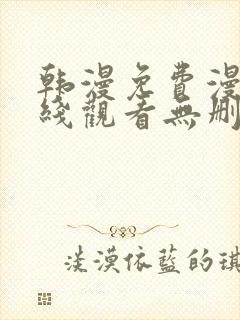 韩漫免費漫
綫觀看無刪
淡漠依藍的琪